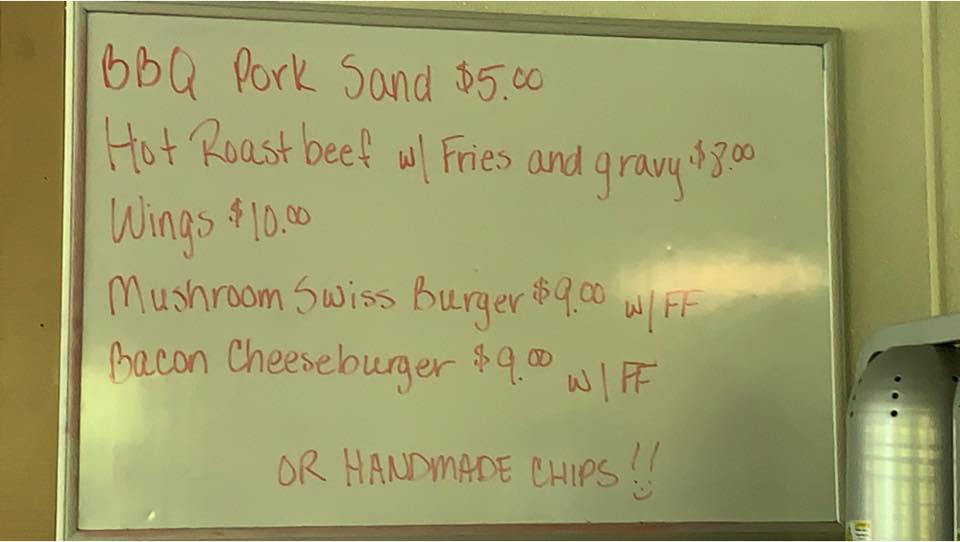 BBQ Pork Sand $5.00
Hot Roast beef w/ Fries and gravy $8.00
Wings $10.00
Mushroom Swiss Burger $9.00 w/ FF
Bacon Cheeseburger $9.00 w/ FF
OR HANDMADE CHIPS!!